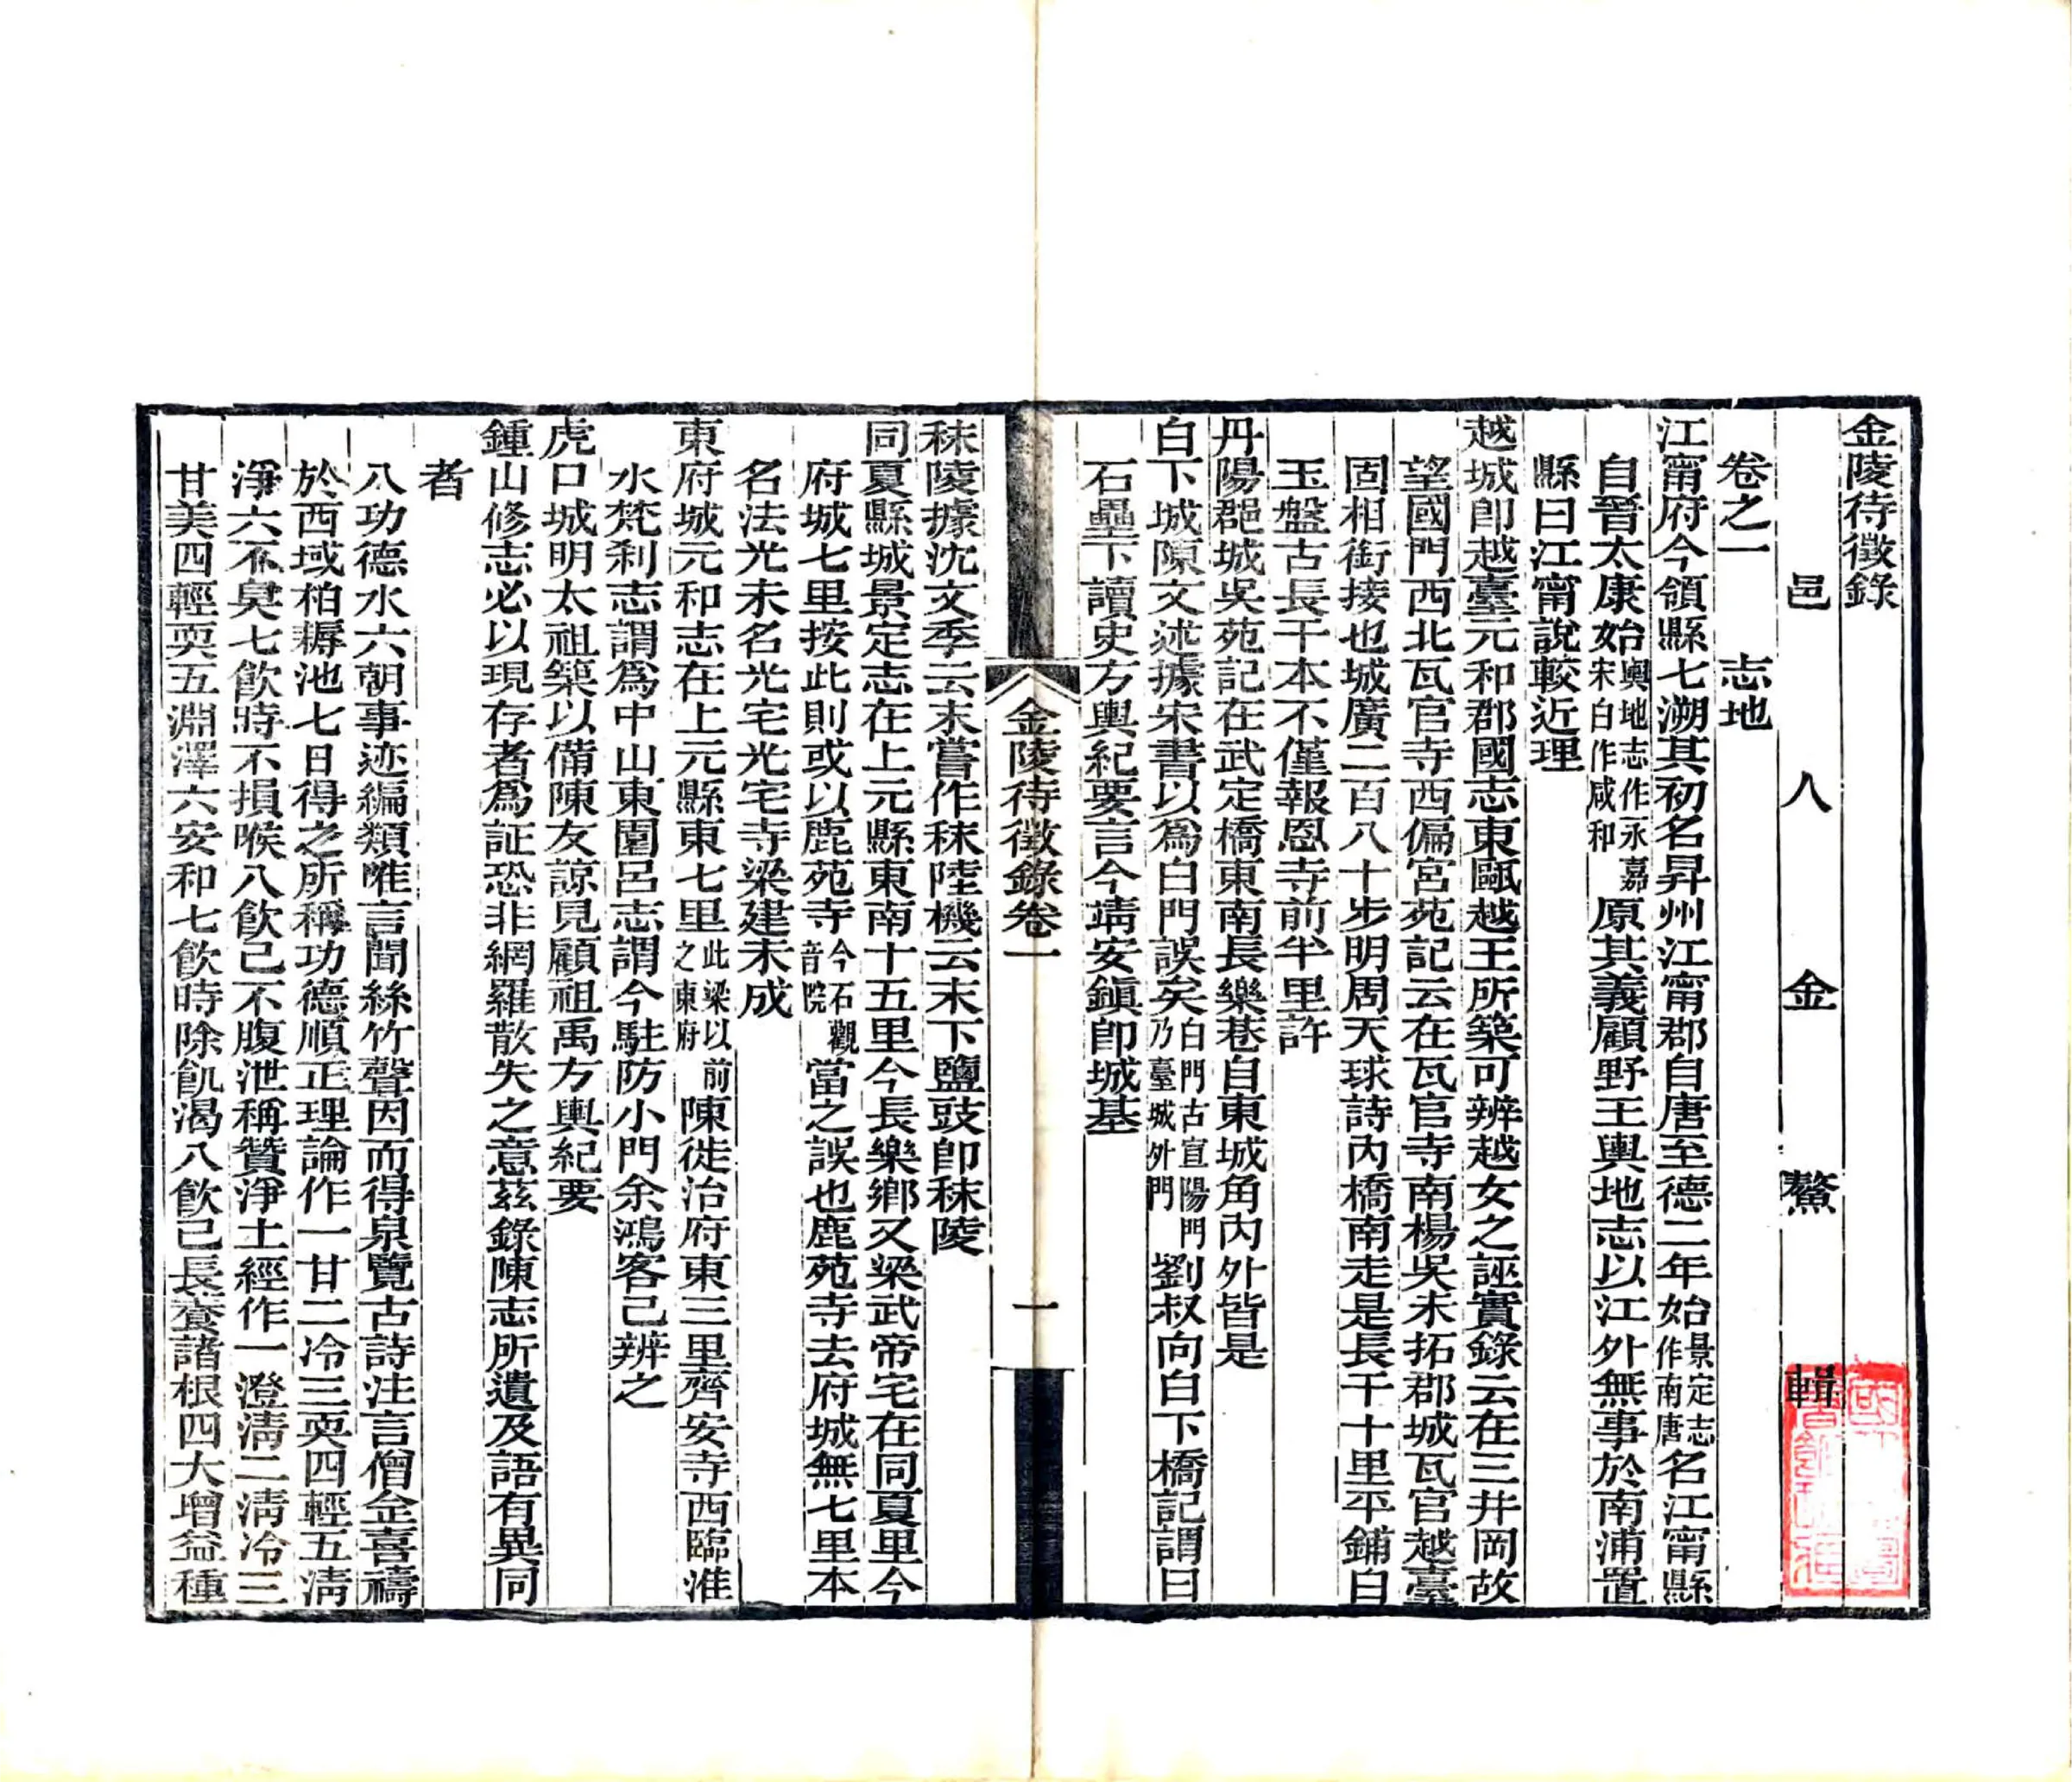 金陵待徵錄
邑人金鰲輯
卷之一 志地
江甯府今領縣七溯其初名昇州江甯郡自唐至德二年始景定志作南唐名江甯縣
自晉太康始輿地志作永嘉宋白作咸和原其義顧野王輿地志以江外無事於南浦置
縣曰江甯說較近理
越城卽越臺元和郡國志東甌越王所築可辨越女之誣實錄云在三井岡故
望國門西北瓦官寺西偏宮苑記云在瓦官寺南楊吳未拓郡城瓦官越臺
固相銜接也城廣二百八十步明周天球詩內橋南走是長干十里平鋪白
玉盤古長干本不僅報恩寺前半里許
丹陽郡城吳苑記在武定橋東南長樂巷自東城角內外皆是
白下城陳文述據宋書以爲白門誤矣白門古宣陽門乃臺城外門劉叔向白下橋記謂曰
石壘下讀史方輿紀要言今靖安鎭卽城基
金陵待徵錄卷一
一
秣陵據沈文季云末嘗作秣陸機云末下鹽豉卽秣陵
同夏縣城景定志在上元縣東南十五里今長樂鄉又梁武帝宅在同夏里今
府城七里按此則或以鹿苑寺今石觀音院當之誤也鹿苑寺去府城無七里本
名法光未名光宅光宅寺梁建未成
東府城元和志在上元縣東七里此梁以前之東府陳徙治府東三里齊安寺西臨淮
水梵剎志謂爲中山東園呂志謂今駐防小門余鴻客已辨之
虎口城明太祖築以備陳友諒見顧祖禹方輿紀要
鍾山修志必以現存者爲証恐非網羅散失之意茲錄陳志所遺及語有異同
者
八功德水六朝事迹編類唯言聞絲竹聲因而得泉覽古詩注言僧㑒喜禱
於西域柏耨池七日得之所稱功德順正理論作一甘二冷三耎四輕五淸
淨六不臭七飲時不損喉八飲已不腹泄稱贊淨土經作一澄淸二淸冷三
甘美四輕耎五淵澤六安和七飲時除飢渴八飲已長養諸根四大增益種